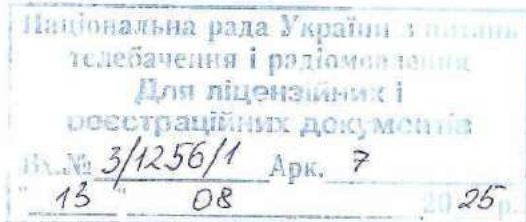 Національна рада України з питань
телебачення і радіомовлення
Для ліцензійних і
реєстраційних документів
Вх.№ 3/1256/1 Арк. 7
"13" 08 2025р.